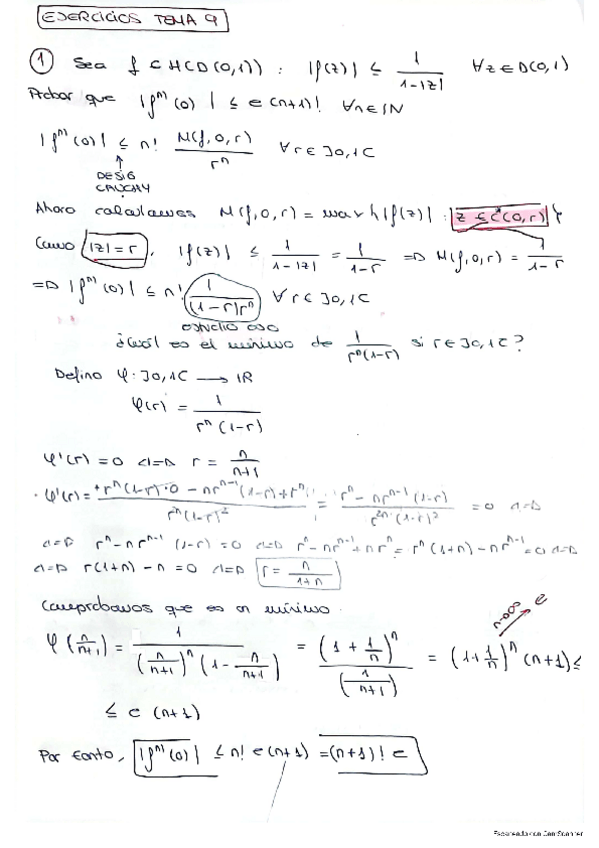 EJERCICIOS TEMA 9
① Sea f ∈ H(D(0,1)) : |f(z)| ≤ 1/(1-|z|) ∀z∈D(0,1)
Probar que |fⁿ⁾(0)| ≤ e(n+1)! ∀n∈ℕ
|fⁿ⁾(0)| ≤ n! M(f,0,r)/rⁿ ∀r∈]0,1[
↑
DESIG
CAUCHY
Ahora calculamos M(f,0,r) = max{|f(z)| : z ∈ C(0,r)}
Como |z|=r, |f(z)| ≤ 1/(1-|z|) = 1/(1-r) => M(f,0,r) = 1/(1-r)
=> |fⁿ⁾(0)| ≤ n! 1/((1-r)rⁿ) ∀r∈]0,1[
estudio eso
¿Cuál es el mínimo de 1/(rⁿ(1-r)) si r∈]0,1[?
Defino φ:]0,1[ → ℝ
φ(r) = 1/(rⁿ(1-r))
φ'(r)=0 <=> r = n/(n+1)
· φ'(r) = (rⁿ(1-r)·0 - nrⁿ⁻¹(1-r)+rⁿ)/(rⁿ(1-r)²) = (rⁿ - nrⁿ⁻¹(1-r))/(r²ⁿ·(1-r)²) = 0 <=>
<=> rⁿ-nrⁿ⁻¹(1-r)=0 <=> rⁿ-nrⁿ⁻¹+nrⁿ = rⁿ(1+n)-nrⁿ⁻¹=0 <=>
<=> r(1+n)-n=0 <=> r = n/(1+n)
Comprobamos que es un mínimo.
φ(n/(n+1)) = 1/((n/(n+1))ⁿ(1-n/(n+1))) = (1+1/n)ⁿ/(1/(n+1)) = (1+1/n)ⁿ(n+1) ≤
n→∞ e
≤ e(n+1)
Por tanto, |fⁿ⁾(0)| ≤ n! e(n+1) = (n+1)! e
Escaneado con CamScanner